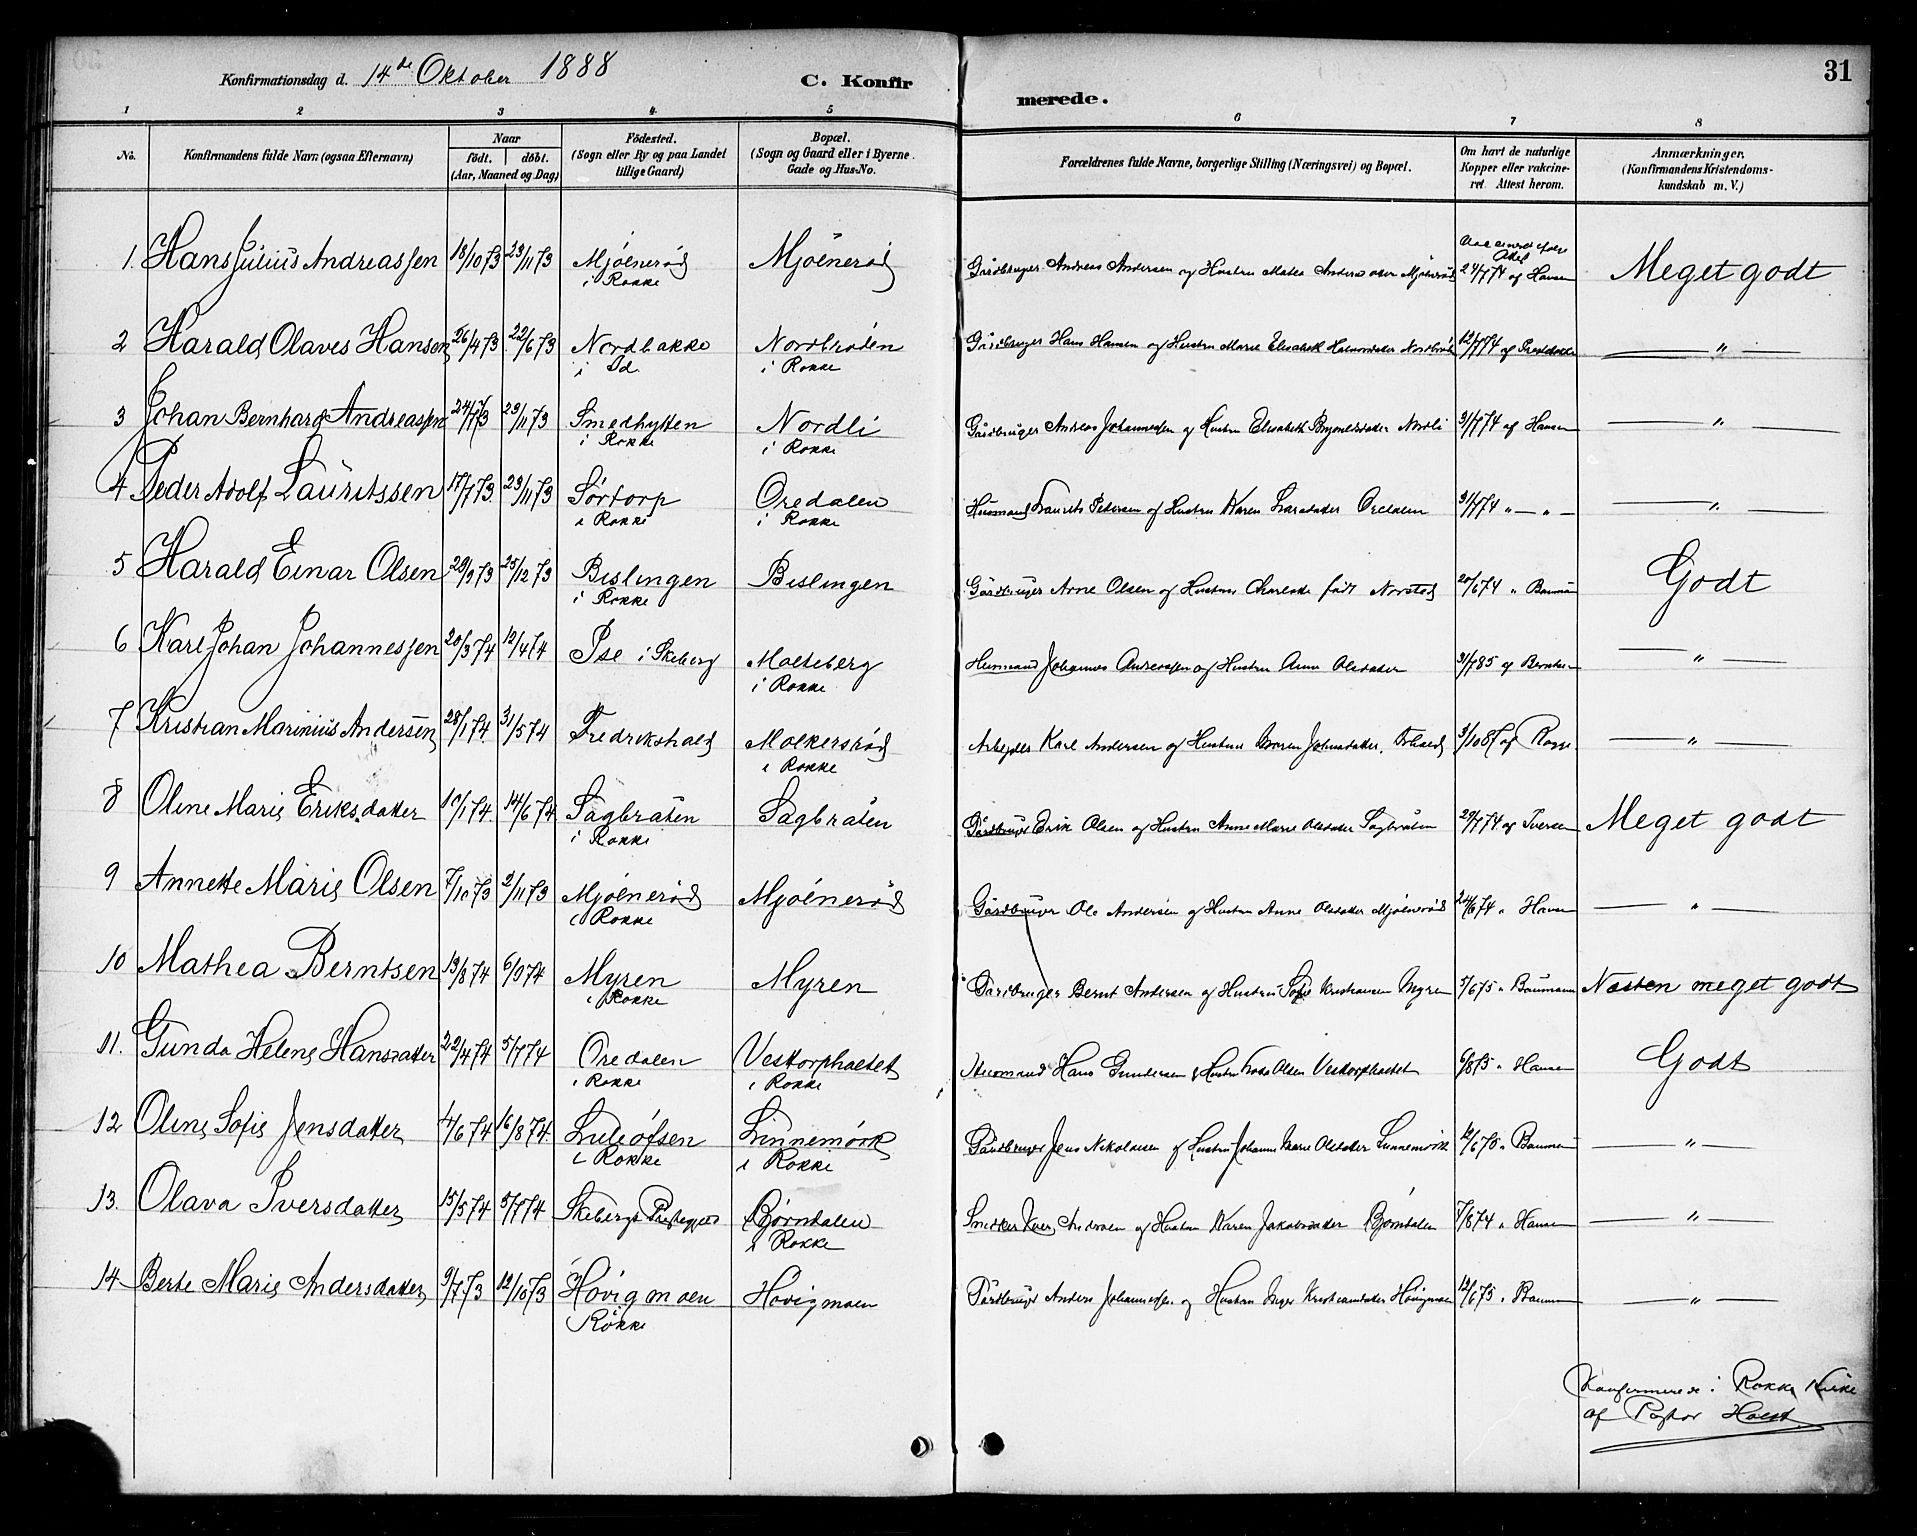 Konfirmationsdag d. 14de Oktober 1888
C. Konfirmerede.
31
1 2 3 4 5 6 7 8
No.
Konfirmandens fulde Navn (ogsaa Efternavn)
Naar
födt. döbt.
(Aar, Maaned og Dag)
Födested.
(Sogn eller By og paa Landet tillige Gaard)
Bopæl.
(Sogn og Gaard eller i Byerne Gade og Hus-No.
Forældrenes fulde Navne, borgerlige Stilling (Næringsvei) og Bopæl.
Om havt de naturlige Kopper eller vakcineret. Attest herom.
Anmærkninger.
(Konfirmandens Kristendomskundskab m. V.)
1. Hans Julius Andreassen 18/10 73 23/11 73 Mjölneröd i Rokke Mjölneröd Gårdbruger Andreas Andersen og Hustru Mjölneröd 24/7 74 af Hansen Meget godt
2 Harald Olaves Hansen 26/4 73 22/6 73 Nordbakke i Id Nordbråten i Rokke Gårdbruger Hans Hansen og Hustru Marie Elisabeth Nordbråten 12/7 74 af — " —
3 Johan Bernhard Andreassen 24/7 73 23/11 73 Smedhytten i Rokke Nordli i Rokke Gårdbruger Andreas Johannessen og Hustru Elisabeth Nordli 31/7 74 af Hansen — " —
4 Peder Adolf Lauritssen 17/7 73 23/11 73 Sörtorp i Rokke Oredalen i Rokke Husmand Laurits Pedersen og Hustru Karen Larsdatter Oredalen 31/7 74 " — " — — " —
5 Harald Einar Olsen 29/9 73 25/12 73 Bislingen i Rokke Bislingen Gårdbruger Arne Olsen og Hustru födt 20/6 74 " Godt
6 Karl Johan Johannessen 20/3 74 12/4 74 Ise i Skeberg Molteberg i Rokke Husmand Johannes Andreassen og Hustru Anne Olsdatter 31/7 85 af — " —
7 Kristian Marinius Andersen 28/1 74 31/5 74 Fredrikshald i Rokke Arbejder Karl Andersen og Hustru Maren Johansdatter — " —
8 Oline Marie Eriksdatter 14/6 74 Sagbråten i Rokke Sagbråten Gårdbruger Erik Olsen og Hustru Anne Marie Olsdatter Sagbråten 29/7 74 af Iversen Meget godt
9 Annette Marie Olsen 7/10 73 2/11 73 Mjölneröd i Rokke Mjölneröd Gårdbruger Ole Andersen og Hustru Anne Olsdatter Mjölneröd 24/6 74 " Hansen — " —
10 Mathea Berntsen 13/8 74 6/9 74 Myren i Rokke Myren Gårdbruger Bernt Andersen og Hustru Sofie Kristiansen Myren 5/6 75 " Baumann Næsten meget godt
11. Gunda Helene Hansdatter 22/4 74 5/7 74 Oredalen i Rokke Vestorpholtet i Rokke Husmand Hans Gundersen & Hustru Olsen Vestorpholtet 6/8 75 " Hansen Godt
12 Oline Sofie Jensdatter 4/6 74 16/8 74 i Rokke Linnemörk i Rokke Gårdbruger Jens Nikolaisen og Hustru Johanne Marie Olsdatter Linnemörk — " —
13. Olava Iversdatter 15/5 74 5/7 74 Skebergs Björndalen i Rokke Iver og Hustru Karen Jakobsdatter Björndalen 7/8 74 " Hansen — " —
14 Berte Marie Andersdatter 9/7 73 12/10 73 Hövigmoen Rokke Hövigmoen Gårdbruger Anders Johannessen og Hustru Inger Kristiansdatter Hövigmoen 12/6 75 " — " —
Konfirmerede i Rokke Kirke
af Pastor Holst